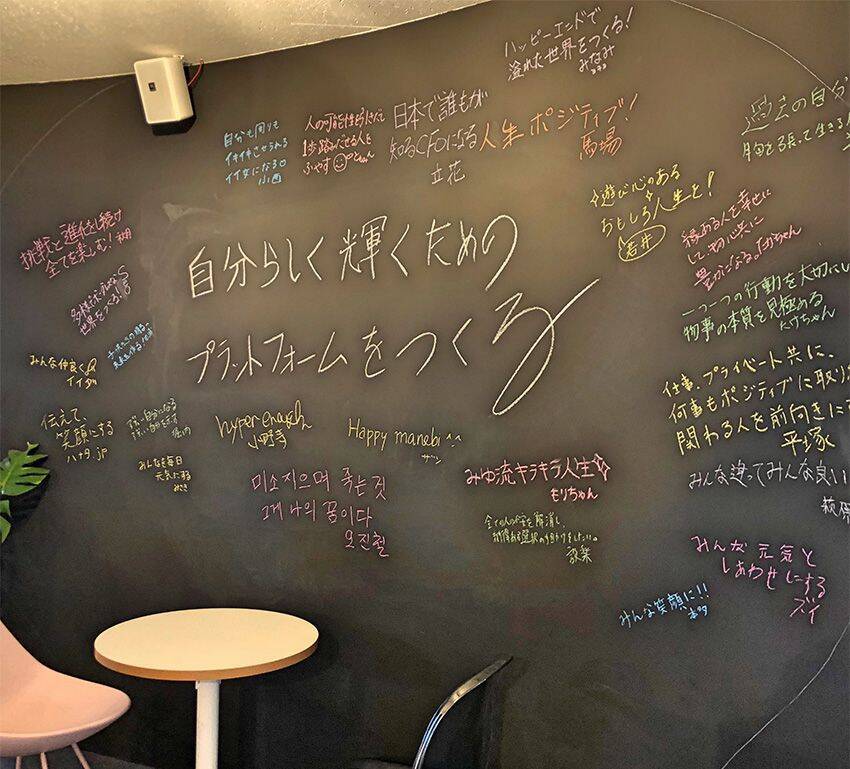 ハッピーエンドで
溢れた世界をつくる!
みなみ
自分も周りも
イキイキさせられる
イイ女になる
小西
1歩踏みだせる人を
ふやす
日本で誰もが
知るCFOになる
立花
人生ポジティブ!
馬場
過去の自分
胸を張って生きる
遊び心のある
おもしろ人生を!
若井
縁ある人を幸せに
して、物心共に
豊かになる。
挑戦と進化し続け
全てを楽しむ!
自分らしく輝くための
プラットフォームをつくる
世界をつくる!
一つ一つの行動を大切にし
物事の本質を見極める
たけちゃん
みんな仲良く
イイダ
仕事、プライベート共に、
何事もポジティブに取り
関わる人を前向きに
平塚
伝えて、
笑顔にする
ハナタ.jp
hyper enough
小野寺
Happy manebi ^^
ザン
みんなを毎日
元気にする
みさき
미소지으며 죽는것
그게 나의 꿈이다
오진철
みゆ流キラキラ人生
もりちゃん
みんな違ってみんな良い
萩原
全ての人の不安を解消し、
みんな元気と
しあわせにする
ズイ
みんな笑顔に!!